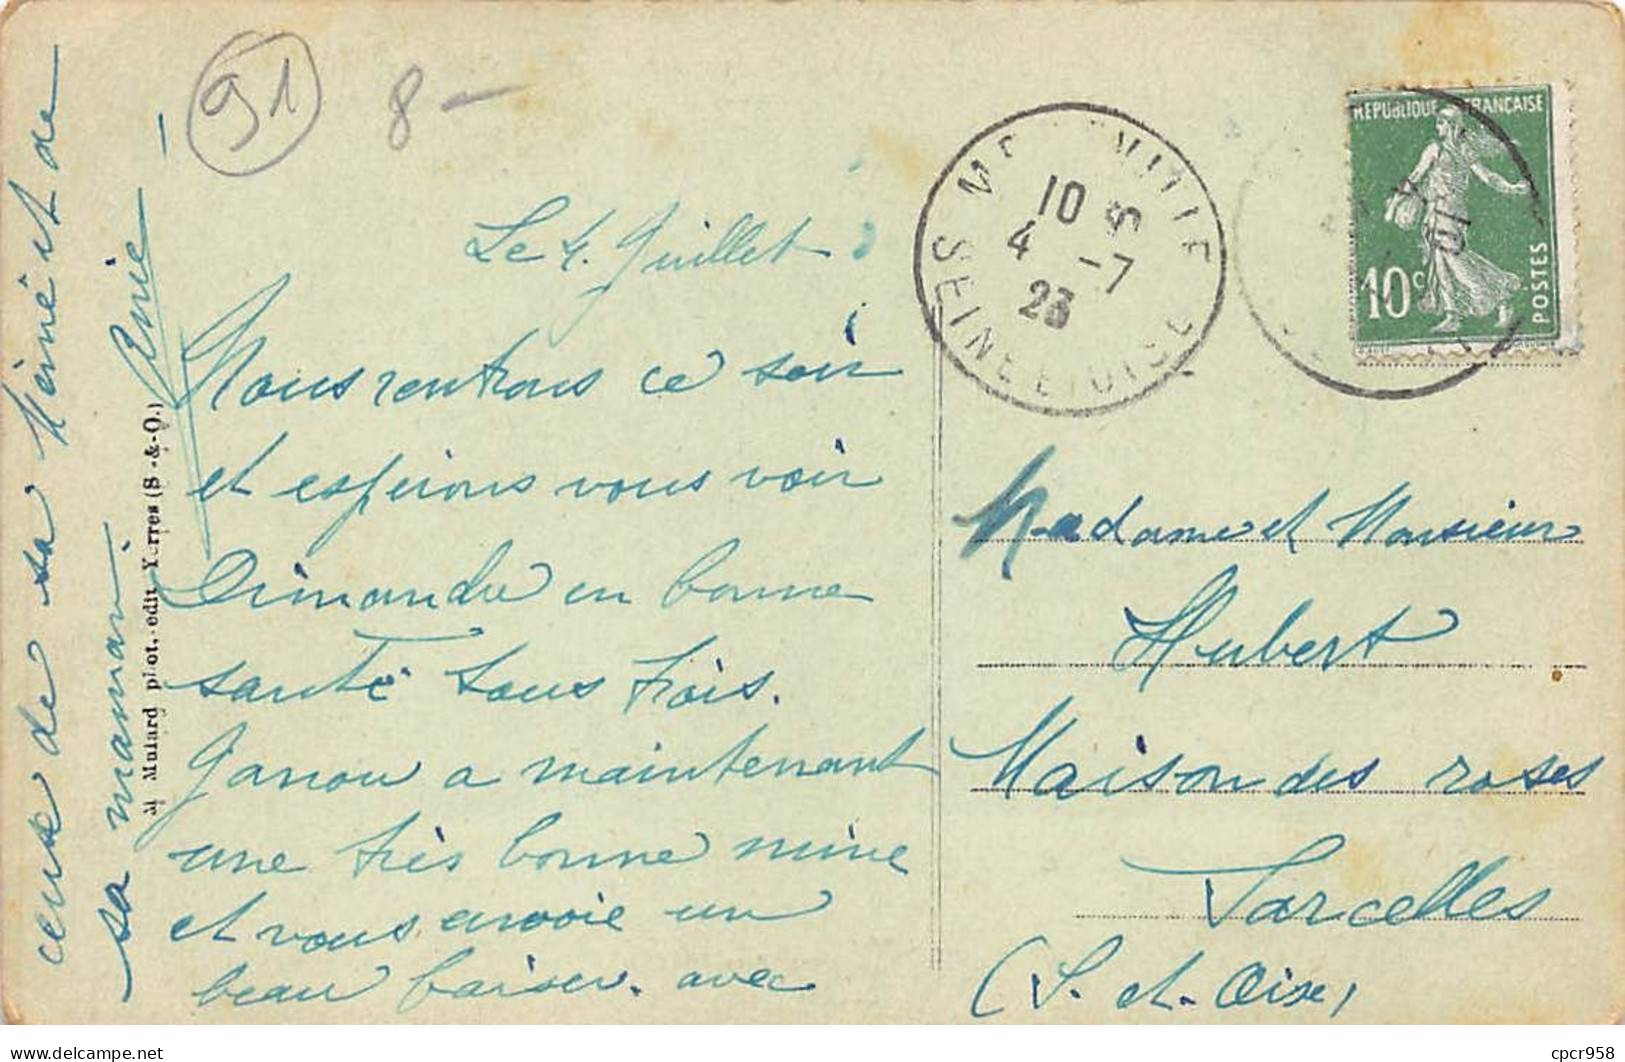 91
8 -
Le 4 Juillet
Nous rentrons ce soir
et espérons vous voir
Dimanche en bonne
santé tous trois.
Janou a maintenant
une très bonne mine
et vous envoie un
beau baiser. avec
ceux de sa Mémé et de
sa maman.
phot.-édit. Yerres (S.-&-O.)
10 S
4 -7
23
SEINE ET OISE
REPUBLIQUE FRANÇAISE
10c
POSTES
Madame et Monsieur
Hubert
Maison des roses
Sarcelles
(S. et. Oise)
cpcr958